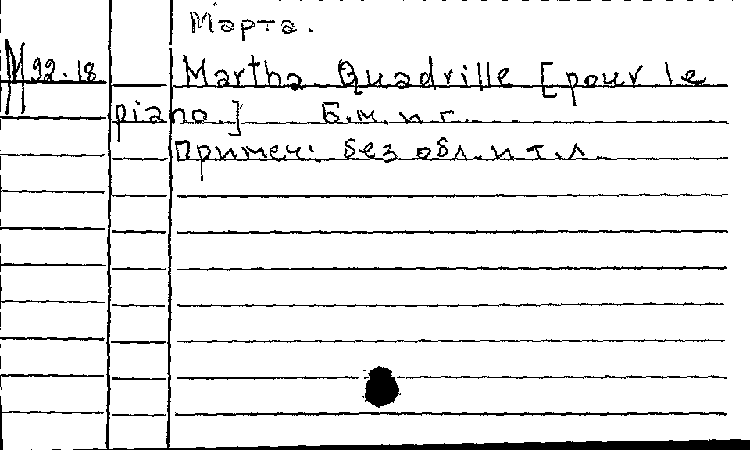 Марта.
М 92.18 Martha. Quadrille [pour le
piano.] Б.м. и г.
Примеч: без обл. и т.л.